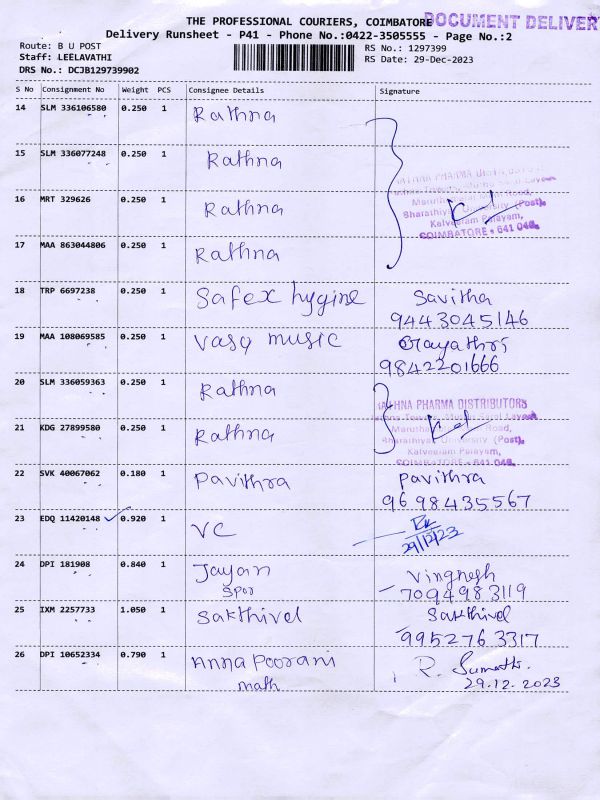 THE PROFESSIONAL COURIERS, COIMBATORE DOCUMENT DELIVER
Delivery Runsheet - P41 - Phone No.:0422-3505555 - Page No.:2
Route: B U POST RS No.: 1297399
Staff: LEELAVATHI RS Date: 29-Dec-2023
DRS No.: DCJB129739902
S No Consignment No Weight PCS Consignee Details Signature
14 SLM 336106580 0.250 1 Rathna
15 SLM 336077248 0.250 1 Rathna
16 MRT 329626 0.250 1 Rathna
Bharathiyar University (Post),
Kalveeram Palayam,
COIMBATORE - 641 046.
17 MAA 863044806 0.250 1 Rathna
18 TRP 6697238 0.250 1 Safex hygine Savitha
9443045146
19 MAA 108069585 0.250 1 Vasy music Gayathri
9842201666
20 SLM 336059363 0.250 1 Rathna
RATHNA PHARMA DISTRIBUTORS
21 KDG 27899580 0.250 1 Rathna
Road,
Bharathiyar University (Post),
Kalveeram Palayam,
COIMBATORE - 641 046.
22 SVK 40067062 0.180 1 Pavithra Pavithra
9698435567
23 EDQ 11420148 0.920 1 VC
29/12/23
24 DPI 181908 0.840 1 Jayan Vinghesh
Spor 7094983119
25 IXM 2257733 1.050 1 Sakthivel Sakthivel
9952763317
26 DPI 10652334 0.790 1 Anna Poorani R. Sumathi
math 29.12.2023